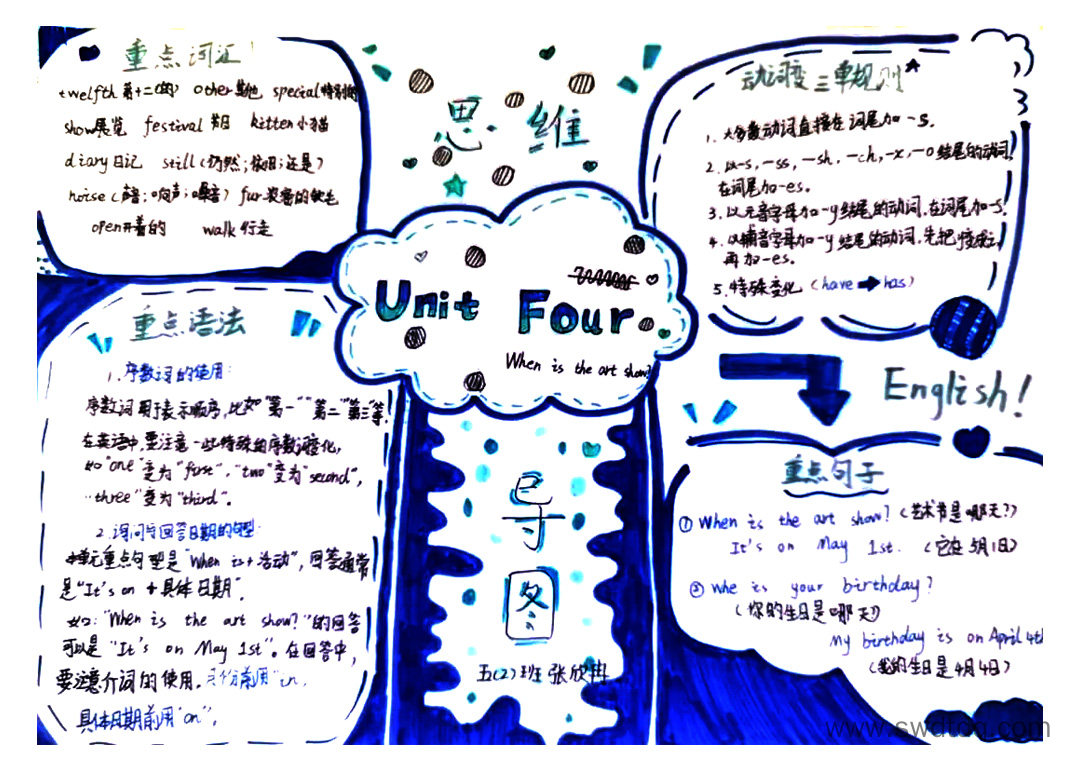 重点词汇!
twelfth 第十二(的) other 其他 special 特别的
show展览 festival 节日 kitten 小猫
diary 日记 still(仍然;依旧;还是)
noise(声音;响声;噪音) fur 浓密的软毛
open开着的 walk 行走
思维
动词变三单规则
1. 大多数动词直接在词尾加-s.
2. 以-s,-ss,-sh,-ch,-x,-o结尾的动词,
在词尾加-es.
3. 以元音字母加-y结尾的动词,在词尾加-s.
4. 以辅音字母加-y结尾的动词,先把y变成i,
再加-es.
5. 特殊变化 (have ➡ has)
Unit Four
When is the art show?
重点语法
1. 序数词的使用:
序数词用于表示顺序,比如"第一""第二""第三"等!
在英语中,要注意一些特殊的序数词变化,
如"one"变为"first","two"变为"second",
"three"变为"third".
2. 询问与回答日期的句型:
本单元重点句型是"When is+活动",回答通常
是"It's on +具体日期".
如:"When is the art show?"的回答
可以是"It's on May 1st".在回答中,
要注意介词的使用.月份前用"in,
具体日期前用"on".
导
图
五(2)班 张欣冉
English!
重点句子
① When is the art show? (艺术节是哪天?)
It's on May 1st. (它在5月1日)
② whe is your birthday?
(你的生日是哪天)
My birthday is on April 4th
(我的生日是4月4日)